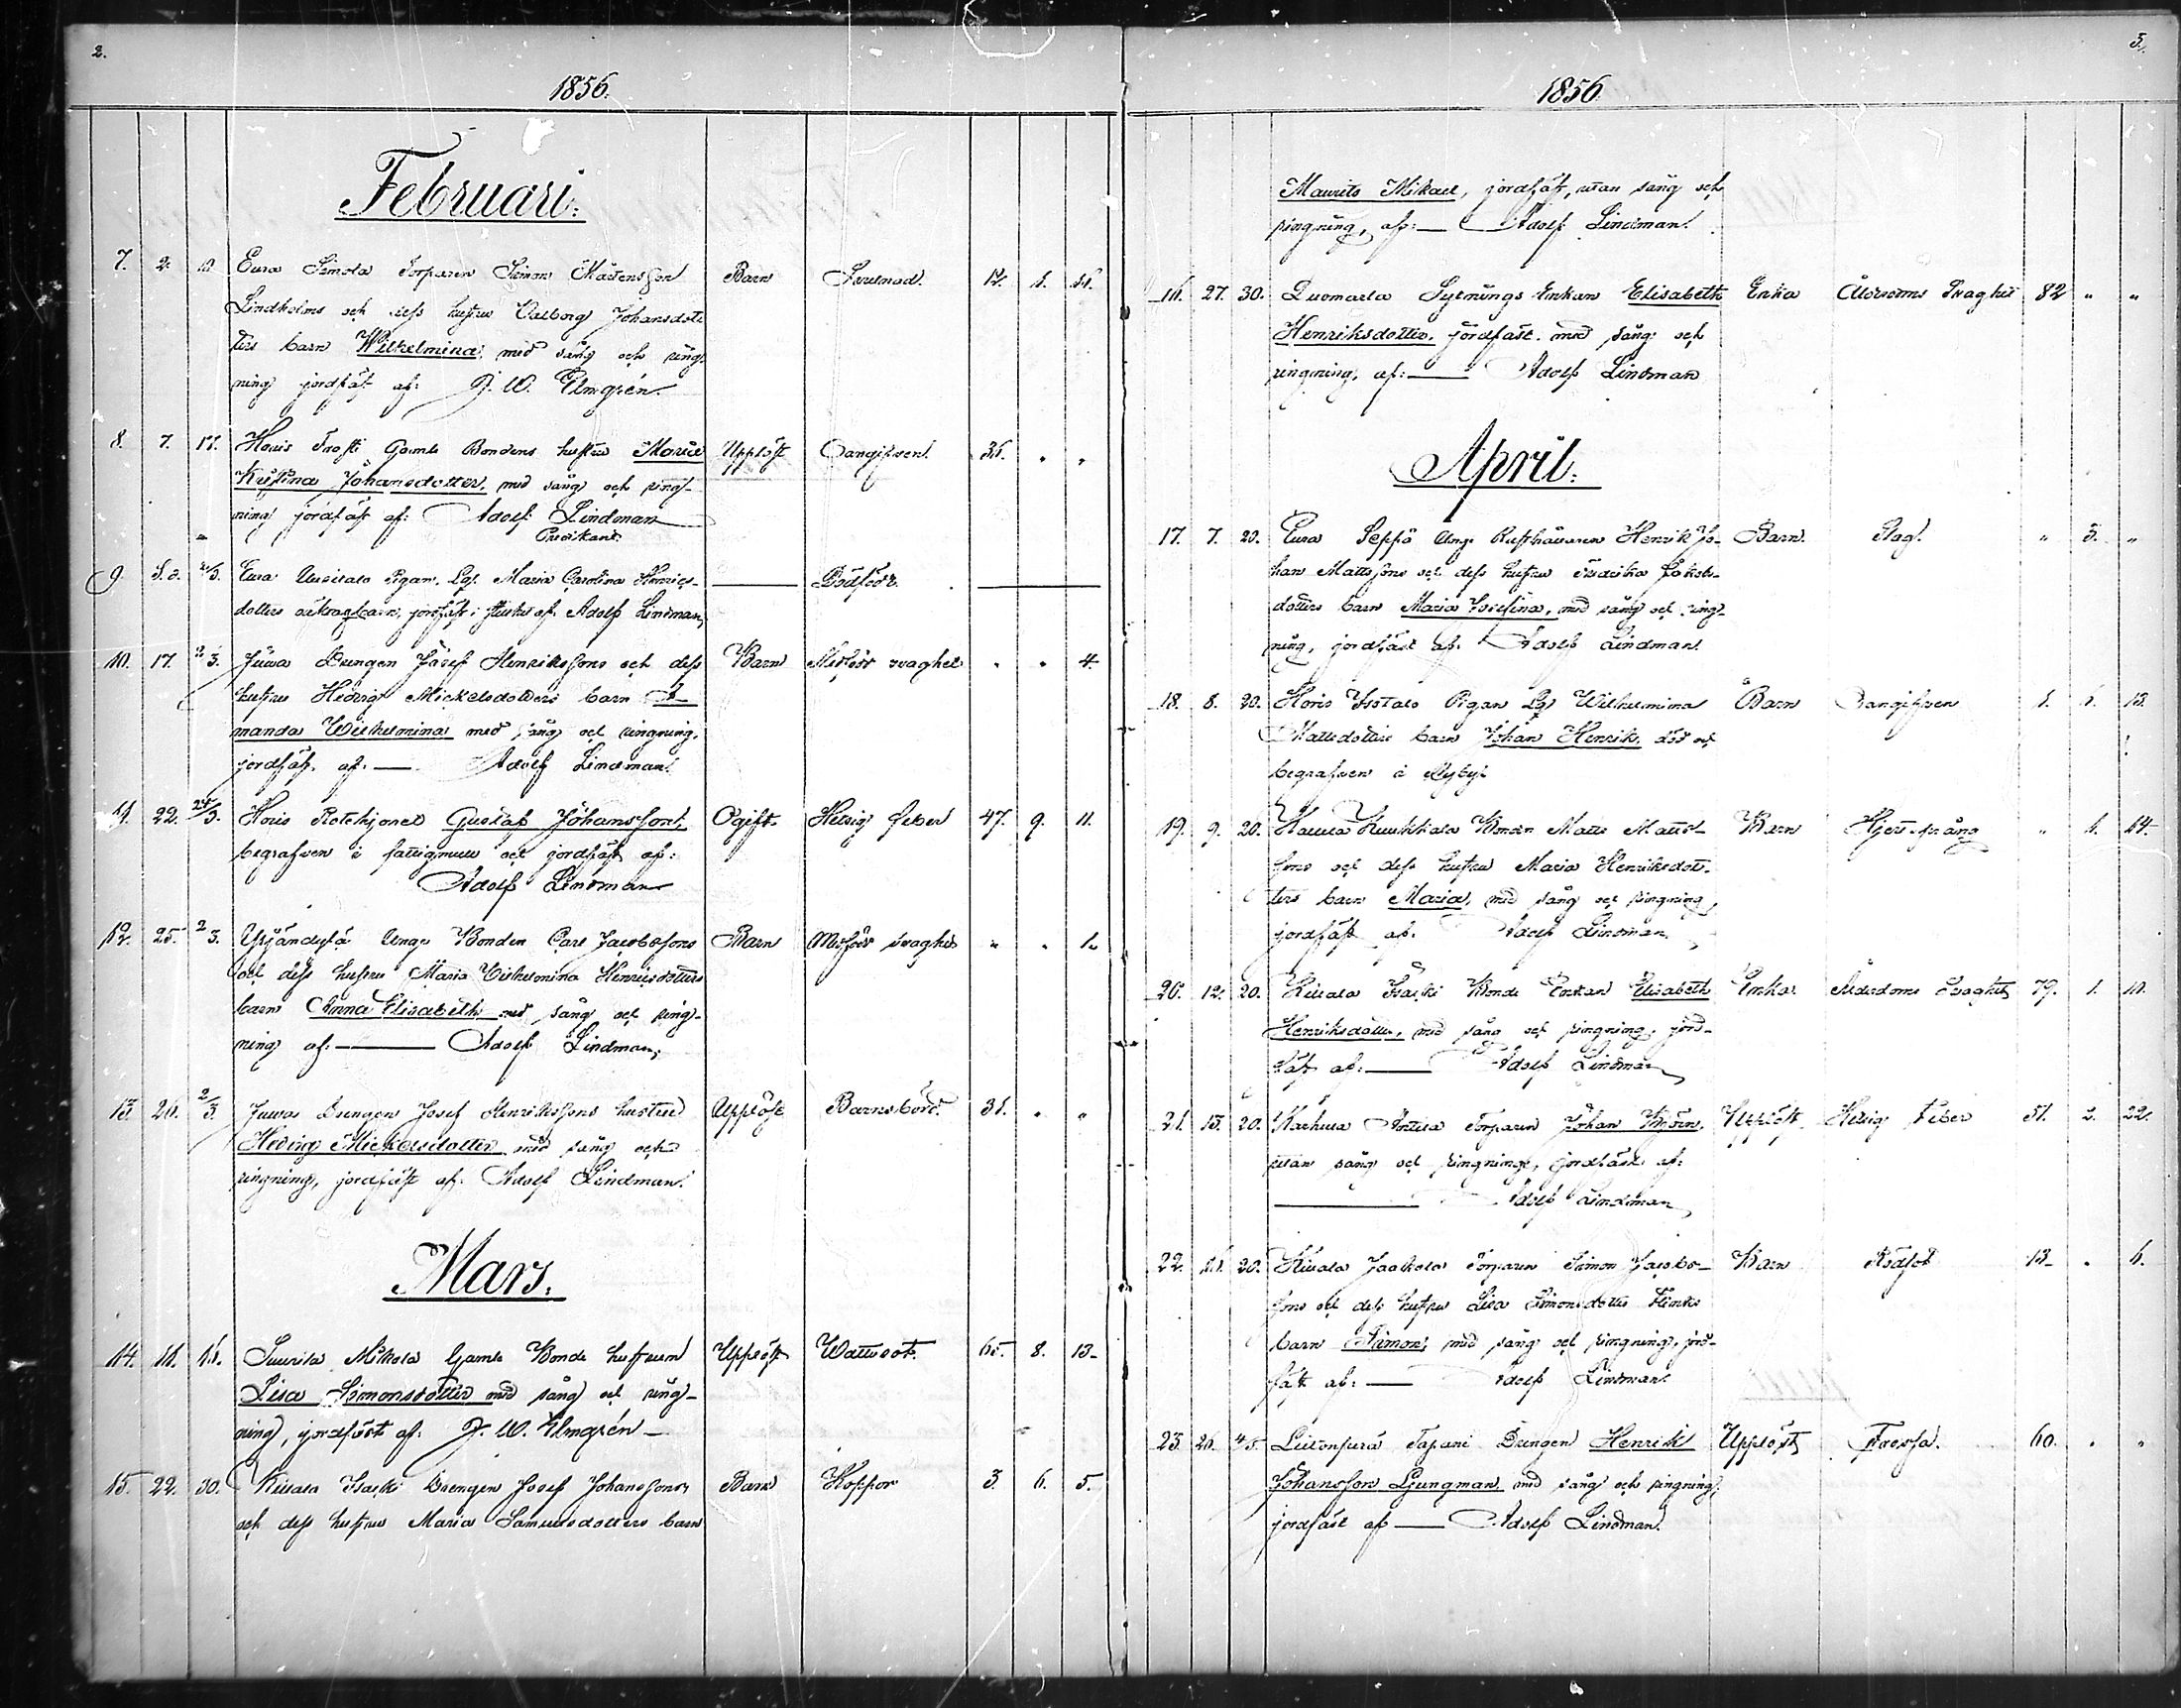 2.
1856.
Februari.
7. 2. 10 Eura Simola Torparen Simon Mårtensson Barn 12. 1.
Lindholms och dess hustru Valborg Johansdot-
ters barn Wilhelmina, med sång och ring-
ning jordfäst af: J. W. Elmgrén.
8. 7. 17. Gamle Bondens hustru Maria Upplöst Oangifven. 36. " "
Kristina Johansdotter, med sång och ring-
ning jordfäst af: Adolf Lindman
Predikant.
9 S.d. 2/3. Eura Pigan Lg. Maria Carolina Henriks- Dödfödt.
dotters oäkta barn, jordfäst i af. Adolf Lindman,
10. 17. 2/3. Juwa Drengen Josef Henrikssons och dess Barn Medfödd svaghet " " 4.
hustrus Hedvig Mickelsdotters barn A-
manda Wilhelmina med sång och ringning,
jordfäst af. Adolf Lindman.
11. 22. 24/3. Rotehjonet Gustaf Johansson, Ogift. Hetsig feber 47. 9. 11.
begrafven i fattigmull och jordfäst af:
Adolf Lindman
12. 25. 2/3. Yrjänäylä Unge Bonden Carl Jacobssons Barn Medfödd svaghet " " 1.
och dess hustrus Maria Wilhelmina Henriksdotters
barn Anna Elisabeth med sång och ring-
ning af: Adolf Lindman,
13. 26. 2/3. Juwas Drengen Josef Henrikssons hustru Upplöst Barnsbörd. 31. " "
Hedvig Mickelsdotter med sång och
ringning, jordfäst af. Adolf Lindman.
Mars.
14. 11. 16. Suurila Mikola Gamle Bonde hustrun Upplöst Wattusot. 65. 8. 13.
Lisa Simonsdotter med sång och ring-
ning, jordfäst af. J. W. Elmgrén
15. 22. 30. Drengen Josef Johanssons Barn Koppor 3. 6. 5.
och dess hustrus Maria Samuelsdotters barn
3.
1856.
Maurits Mikael, jordfäst, utan sång och
ringning, af: Adolf Lindman.
16. 27. 30. Luomala Sytnings Enkan Elisabeth Enka Ålderdoms Svaghet 82 " "
Henriksdotter, jordfäst med sång och
ringning, af: Adolf Lindman
April.
17. 7. 20. Eura Seppä Unge Rusthållaren Henrik Jo- Barn. Slag. " 3. "
han Mattssons och dess hustrus Fredrika Jakobs-
dotters barn Maria Josefina, med sång och ring-
ning, jordfäst af. Adolf Lindman.
18. 8. 20. Pigan Lg. Wilhelmina Barn Oangifven 1. 1. 13.
Mattsdotters barn Johan Henrik, död och
begrafven i Nykyr
19. 9. 20. Bonden Matts Matts- Barn " 1. 14.
sons och dess hustrus Maria Henriksdot-
ters barn Maria, med sång och ringning,
jordfäst af. Adolf Lindman.
20. 12. 20. Bonde Enkan Elisabeth Enka Ålderdoms Svaghet 79. 1. 10.
Henriksdotter, med sång och ringning, jord-
fäst af: Adolf Lindman
21. 15. 20. Anttila Torparen Johan Björn, Upplöst Hetsig Feber 51. 2. 22.
utan sång och ringning, jordfäst af:
Adolf Lindman
22. 16. 20. Jaakola Torparen Simon Jacobs- Barn Rödsot 13 " 6.
sons och dess hustrus Lisa Simonsdotter
barn Simon, med sång och ringning, jord-
fäst af: Adolf Lindman.
23. 26. 4/5. Tapani Drengen Henrik Upplöst Frossa. 60. " "
Johansson Ljungman, med sång och ringning,
jordfäst af Adolf Lindman.